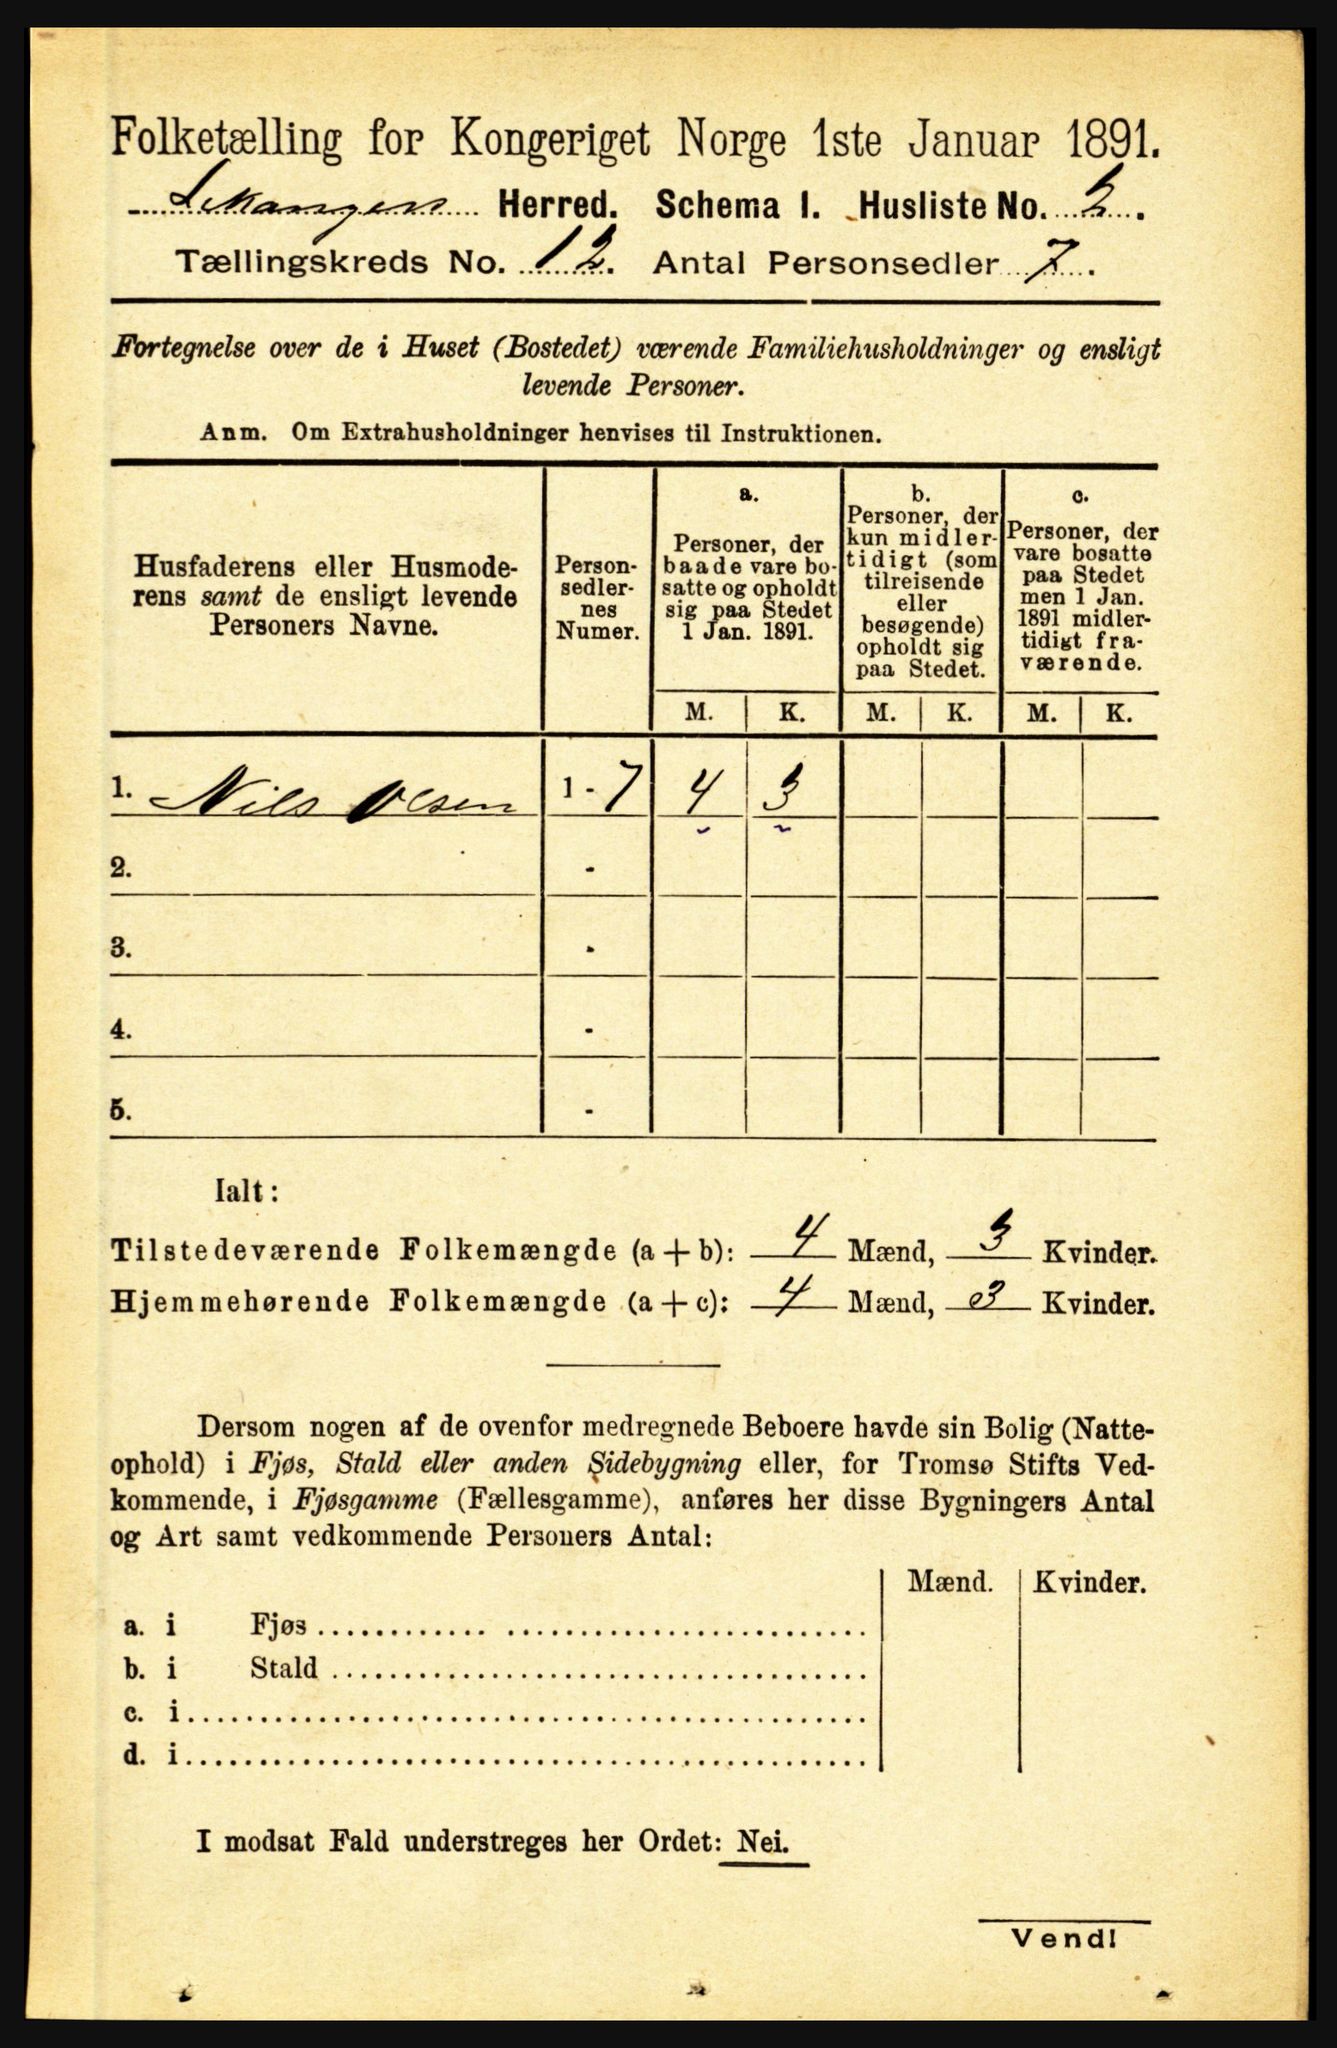 Folketælling for Kongeriget Norge 1ste Januar 1891.
Lekangers Herred. Schema I. Husliste No. 3.
Tællingskreds No. 12. Antal Personsedler 7.
Fortegnelse over de i Huset (Bostedet) værende Familiehusholdninger og ensligt
levende Personer.
Anm. Om Extrahusholdninger henvises til Instruktionen.
Husfaderens eller Husmode-
rens samt de ensligt levende
Personers Navne.
Person-
sedler-
nes
Numer.
a.
Personer, der
baade vare bo-
satte og opholdt
sig paa Stedet
1 Jan. 1891.
b.
Personer, der
kun midler-
tidigt (som
tilreisende
eller
besøgende)
opholdt sig
paa Stedet.
c.
Personer, der
vare bosatte
paa Stedet
men 1 Jan.
1891 midler-
tidigt fra-
værende.
M. K. M. K. M. K.
1. Nils Olsen 1 - 7 4 3
2. -
3. -
4. -
5. -
Ialt:
Tilstedeværende Folkemængde (a + b): 4 Mænd, 3 Kvinder.
Hjemmehørende Folkemængde (a + c): 4 Mænd, 3 Kvinder.
Dersom nogen af de ovenfor medregnede Beboere havde sin Bolig (Natte-
ophold) i Fjøs, Stald eller anden Sidebygning eller, for Tromsø Stifts Ved-
kommende, i Fjøsgamme (Fællesgamme), anføres her disse Bygningers Antal
og Art samt vedkommende Personers Antal:
Mænd. Kvinder.
a. i Fjøs
b. i Stald
c. i
d. i
I modsat Fald understreges her Ordet: Nei.
Vend!